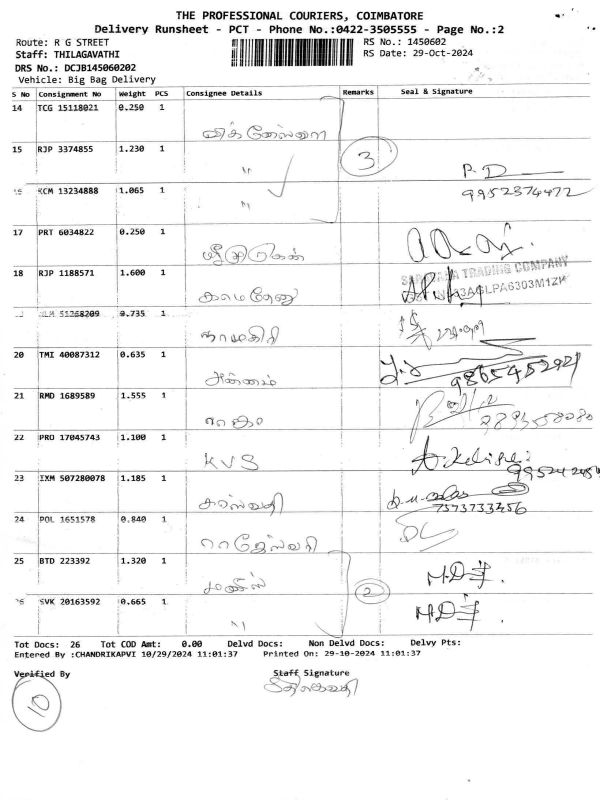 THE PROFESSIONAL COURIERS, COIMBATORE
Delivery Runsheet - PCT - Phone No.:0422-3505555 - Page No.:2
Route: R G STREET RS No.: 1450602
Staff: THILAGAVATHI RS Date: 29-Oct-2024
DRS No.: DCJB145060202
Vehicle: Big Bag Delivery
S No Consignment No Weight PCS Consignee Details Remarks Seal & Signature
14 TCG 15118021 0.250 1
விக்னேஸ்வரா
15 RJP 3374855 1.230 1
" 3 P. D
KCM 13234888 1.065 1 9952374472
"
17 PRT 6034822 0.250 1
ஸ்ரீமுருகன்
18 RJP 1188571 1.600 1 TRADING COMPANY
காமதேனு
51268209 0.735 1
நாமகிரி
20 TMI 40087312 0.635 1
அன்னம்
21 RMD 1689589 1.555 1
22 PRO 17045743 1.100 1
KVS
23 IXM 507280078 1.185 1
சரஸ்வதி 7373733456
24 POL 1651578 0.840 1
ராஜேஸ்வரி
25 BTD 223392 1.320 1
2
SVK 20163592 0.665 1
"
Tot Docs: 26 Tot COD Amt: 0.00 Delvd Docs: Non Delvd Docs: Delvy Pts:
Entered By :CHANDRIKAPVI 10/29/2024 11:01:37 Printed On: 29-10-2024 11:01:37
Verified By Staff Signature
10 திலகவதி